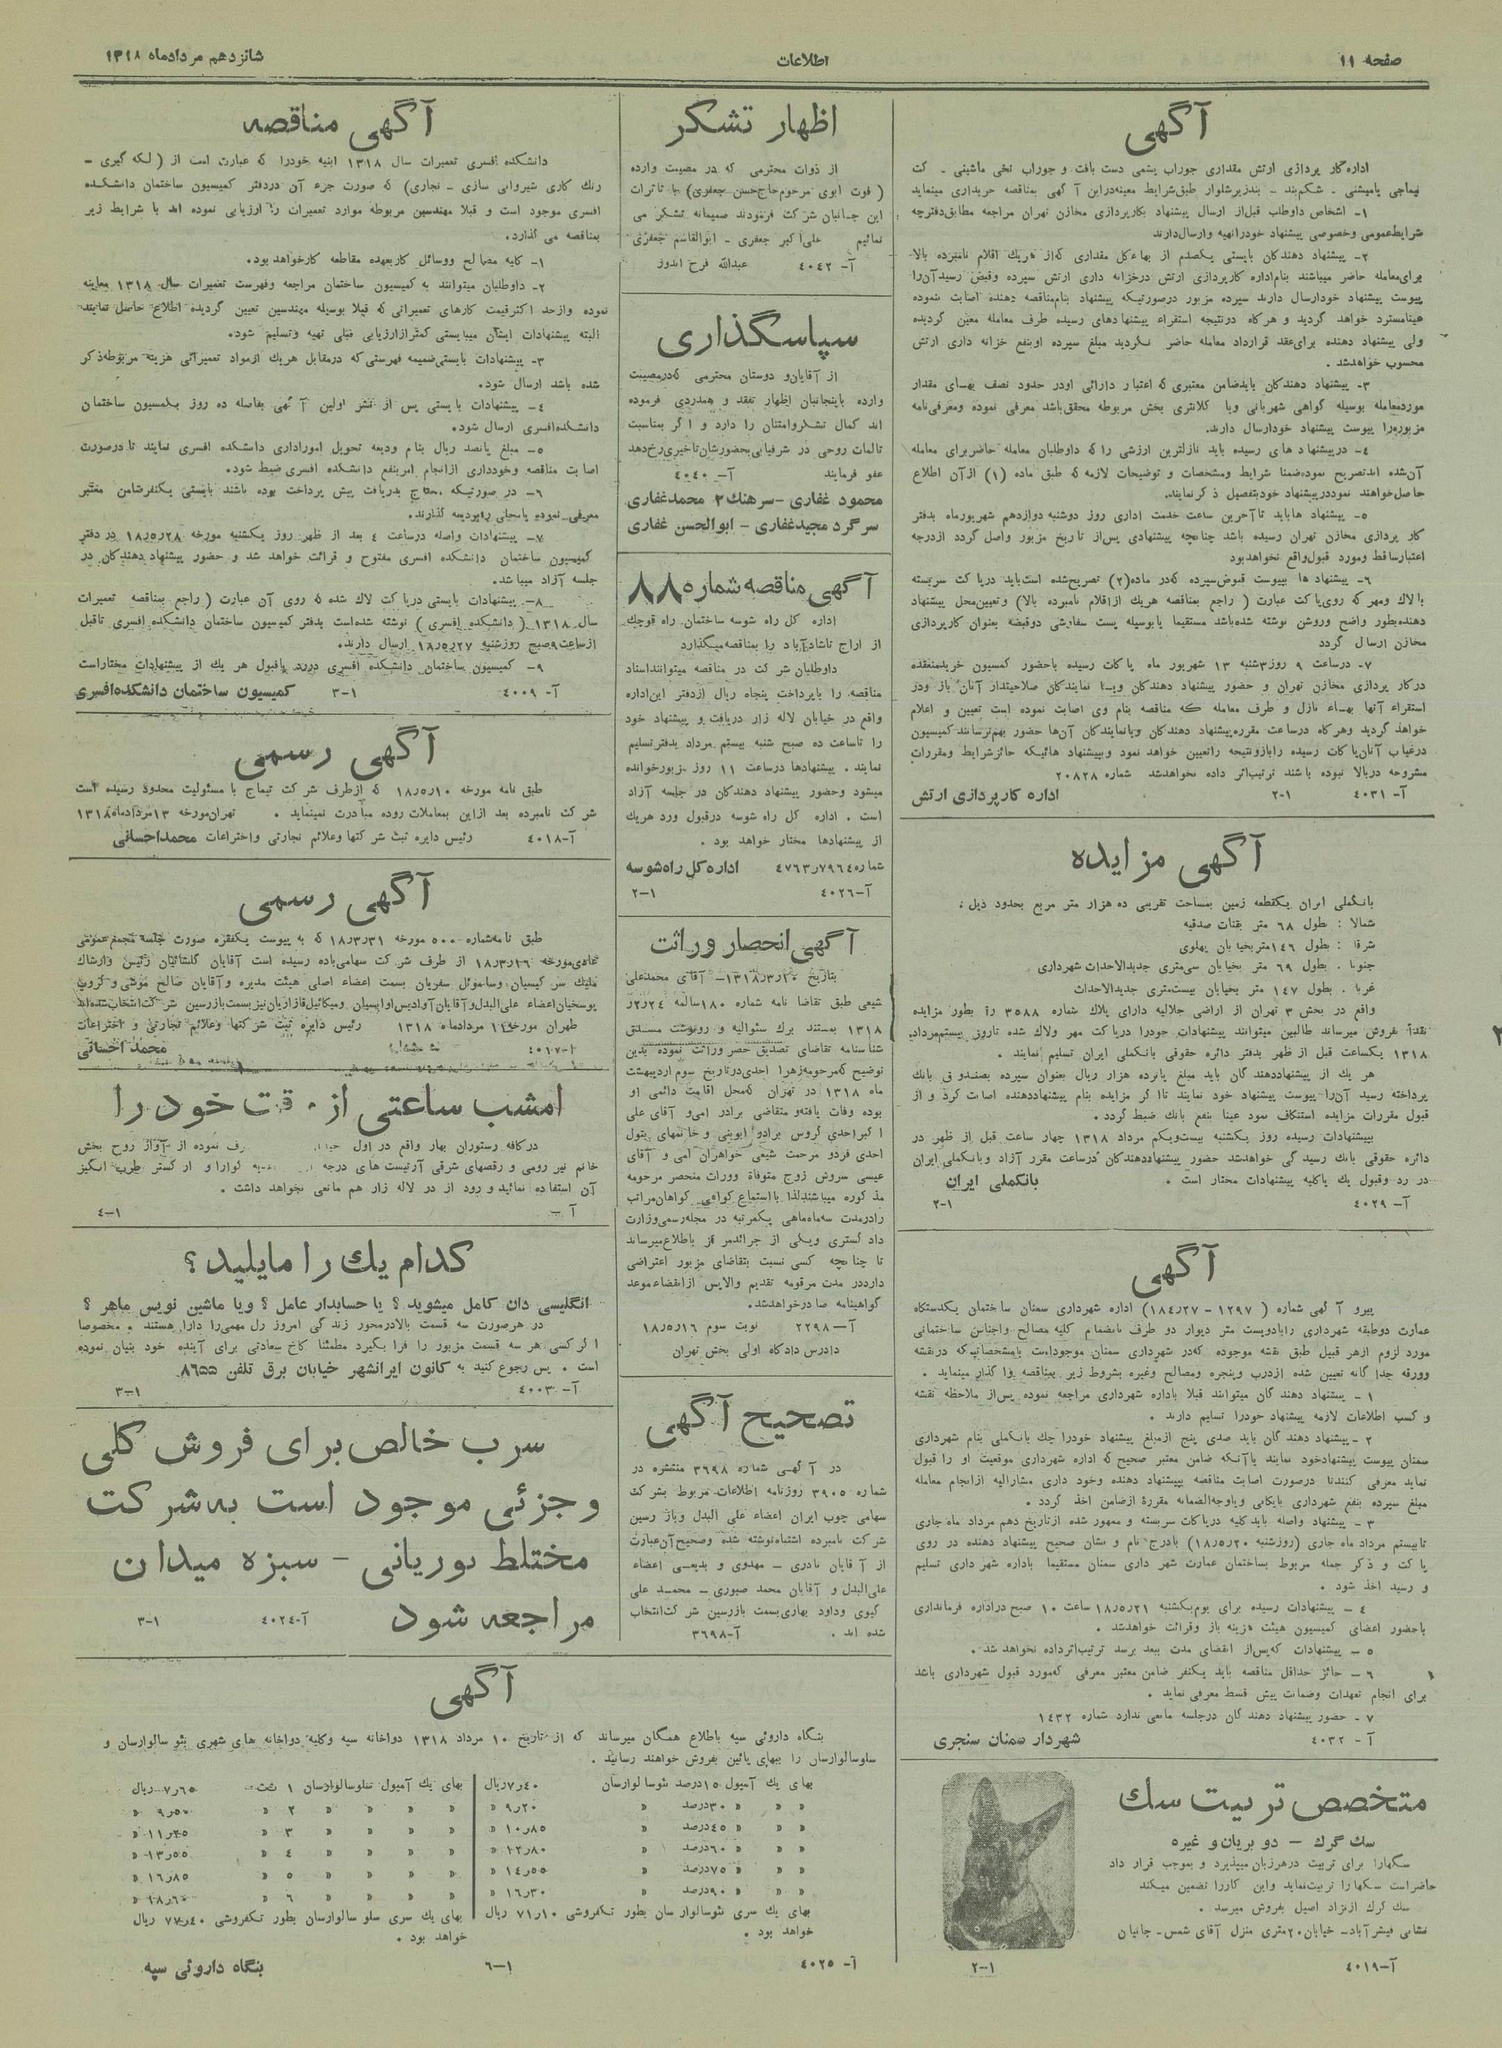 صفحه ۱۱
اطلاعات
شانزدهم مردادماه ۱۳۱۸
آگهی
اداره‌کار پردازی ارتش مقداری جوراب پشمی دست بافت و جوراب نخی ماشینی ـ کت
تیماجی یامیشنی ـ شکم‌بند ـ بندزیرشلوار طبق‌شرایط معینه دراین آگهی بمناقصه خریداری مینماید
۱- اشخاص داوطلب قبل‌از ارسال پیشنهاد بکارپردازی مخازن تهران مراجعه مطابق دفترچه
شرایط‌عمومی وخصوصی پیشنهاد خودراتهیه وارسال‌دارند
۲- پیشنهاد دهندگان بایستی یکصدم از بهاءکل مقداری که‌از هریك اقلام نامبرده بالا
برای‌معامله حاضر میباشند بنام‌اداره کارپردازی ارتش درخزانه داری ارتش سپرده وقبض رسیدآن‌را
پیوست پیشنهاد خودارسال دارند سپرده مزبور درصورتیکه پیشنهاد بنام‌مناقصه دهنده اصابت ننموده
عینامسترد خواهد گردید و هرگاه درنتیجه استقراء پیشنهادهای رسیده طرف معامله معین گردیده
ولی پیشنهاد دهنده برای‌عقد قرارداد معامله حاضر نگردید مبلغ سپرده اوبنفع خزانه داری ارتش
محسوب خواهدشد.
۳- پیشنهاد دهندگان بایدضامن معتبری که اعتبار دارائی اودر حدود نصف بهای مقدار
موردمعامله بوسیله گواهی شهربانی ویا کلانتری بخش مربوطه محقق‌باشد معرفی نموده ومعرفی‌نامه
مزبوررا پیوست پیشنهاد خودارسال دارند.
۴- درپیشنهادهای رسیده باید نازلترین ارزشی را که داوطلبان معامله حاضربرای معامله
آن‌شده اندتصریح نموده‌ضمنا شرایط ومشخصات و توضیحات لازمه که طبق ماده (۱) ازآن اطلاع
حاصل‌خواهند نموددرپیشنهاد خودبتفصیل ذکرنمایند.
۵- پیشنهادهاباید تاآخرین ساعت خدمت اداری روز دوشنبه دوازدهم شهریورماه بدفتر
کار پردازی مخازن تهران رسیده باشد چنانچه پیشنهادی پس‌از تاریخ مزبور واصل گردد ازدرجه
اعتبارساقط ومورد قبول‌واقع نخواهدبود
۶- پیشنهادها بپیوست قبوض‌سپرده که‌در ماده(۲) تصریح‌شده است‌باید درپاکت سربسته
بالاك ومهر که روی‌پاکت عبارت ( راجع بمناقصه هریك ازاقلام نامبرده بالا) وتعیین‌محل پیشنهاد
دهنده‌بطور واضح وروشن نوشته شده‌باشد مستقیما یابوسیله پست سفارشی دوقبضه بعنوان کارپردازی
مخازن ارسال گردد
۷- درساعت ۹ روز۳شنبه ۱۳ شهریور ماه پاکات رسیده باحضور کمسیون خریدمنعقده
درکار پردازی مخازن تهران و حضور پیشنهاد دهندگان ویا نمایندگان صلاحیتدار آنان باز ودر
استقراء آنها بهاء نازل و طرف معامله که مناقصه بنام وی اصابت نموده است تعیین و اعلام
خواهد گردید وهرگاه درساعت مقرره‌پیشنهاد دهندگان ویانمایندگان آن‌ها حضور بهم‌نرسانند کمیسیون
درغیاب آنان‌پاکات رسیده رابازونتیجه راتعیین خواهد نمود وبپیشنهادهائیکه حائزشرایط ومقررات
مشروحه دربالا نبوده باشند ترتیب‌اثر داده نخواهدشد شماره ۲۰۸۲۸
آ- ۴۰۳۱ ۲-۱ اداره کارپردازی ارتش
آگهی مزایده
بانکملی ایران یکقطعه زمین بمساحت تقریبی ده هزار متر مربع بحدود ذیل:
شمالا : بطول ۶۸ متر بقنات صدقیه
شرقا : بطول ۱۴۶متر بخیابان پهلوی
جنوبا . بطول ۶۹ متر بخیابان سی‌متری جدیدالاحداث شهرداری
غربا . بطول ۱۴۷ متر بخیابان بیست‌متری جدیدالاحداث
واقع در بخش ۳ تهران از اراضی جلالیه دارای پلاك شماره ۳۵۸۸ را بطور مزایده
نقداً بفروش میرساند طالبین میتوانند پیشنهادات خودرا درپاکت مهر ولاك شده تاروز بیستم‌مرداد
۱۳۱۸ یکساعت قبل از ظهر بدفتر دائره حقوقی بانکملی ایران تسلیم نمایند .
هر یك از پیشنهاددهندگان باید مبلغ پانزده هزار ریال بعنوان سپرده بصندوق بانك
پرداخته رسید آن‌را پیوست پیشنهاد خود نمایند تااگر مزایده بنام پیشنهاددهنده اصابت کرد و از
قبول مقررات مزایده استنکاف نمود عینا بنفع بانك ضبط گردد .
بپیشنهادات رسیده روز یکشنبه بیست‌ویکم مرداد ۱۳۱۸ چهار ساعت قبل از ظهر در
دائره حقوقی بانك رسیدگی خواهدشد حضور پیشنهاددهندگان درساعت مقرر آزاد وبانکملی ایران
در رد وقبول یك یاکلیه پیشنهادات مختار است . بانکملی ایران
آ- ۴۰۲۹ ۲-۱
آگهی
پیرو آگهی شماره ( ۱۲۹۷ - ۱۸ر۴ر۲۷) اداره شهرداری سمنان ساختمان یکدستگاه
عمارت دوطبقه شهرداری رابادویست متر دیوار دو طرف بانضمام کلیه مصالح واجناس ساختمانی
مورد لزوم ازهر قبیل طبق نقشه موجوده که‌در شهرداری سمنان موجوداست بامشخصاتیکه درنقشه
وورقه جداگانه تعیین شده ازدرب وپنجره ومصالح وغیره بشروط زیر بمناقصه واگذار مینماید .
۱ - پیشنهاد دهندگان میتوانند قبلا باداره شهرداری مراجعه نموده پس‌از ملاحظه نقشه
و کسب اطلاعات لازمه پیشنهاد خودرا تسلیم دارند .
۲ - پیشنهاد دهندگان باید صدی پنج ازمبلغ پیشنهاد خودرا چك بانکملی بنام شهرداری
سمنان پیوست پیشنهادخود نمایند یاآنکه ضامن معتبر صحیح که اداره شهرداری موقعیت او را قبول
نماید معرفی کنندتا درصورت اصابت مناقصه بپیشنهاد دهنده وخود داری مشارالیه ازانجام معامله
مبلغ سپرده بنفع شهرداری بایگانی ویاوجه‌الضمانه مقررة ازضامن اخذ گردد .
۳ - پیشنهاد واصله بایدکلیه درپاکات سربسته و ممهور شده ازتاریخ دهم مرداد ماه جاری
تابیستم مرداد ماه جاری (روزشنبه ۱۸ر۵ر۲۰) بادرج نام و نشان صحیح پیشنهاد دهنده در روی
پاکت و ذکر جمله مربوط بساختمان عمارت شهرداری سمنان مستقیما باداره شهرداری تسلیم
و رسید اخذ شود .
۴ - پیشنهادات رسیده برای یوم‌یکشنبه ۱۸ر۵ر۲۱ ساعت ۱۰ صبح دراداره فرمانداری
باحضور اعضای کمیسیون هیئت هزینه باز وقرائت خواهدشد.
۵ - پیشنهادات که‌پس‌از انقضای مدت ببعد برسد ترتیب‌اثرداده نخواهدشد .
۶ - حائز حداقل مناقصه باید یکنفر ضامن معتبر معرفی که‌مورد قبول شهرداری باشد
برای انجام تعهدات وضمانت پیش قسط معرفی نماید .
۷ - حضور پیشنهاد دهندگان درجلسه مانعی ندارد شماره ۱۴۳۲
آ - ۴۰۳۲ شهردار سمنان سنجری
متخصص تربیت سك
سك گرك — دوبریان و غیره
سگهارا برای تربیت درهرزبان میپذیرد و بموجب قرار داد
حاضراست سگهارا تربیت‌نماید واین کاررا تضمین میکند
سك گرك ازنژاد اصیل بفروش میرسد .
نشانی فیشرآباد- خیابان۲۰متری منزل آقای شمس- جانیان
آ-۴۰۱۹ ۲-۱
اظهار تشکر
از ذوات محترمی که در مصیبت وارده
( فوت ابوی مرحوم‌حاج‌حسن جعفری) با تاثرات
این جانبان شرکت فرمودند صمیمانه تشکر می
نمائیم علی‌اکبر جعفری ـ ابوالقاسم جعفری
آ- ۴۰۴۲ عبدالله فرح اندوز
سپاسگذاری
از آقایان‌و دوستان محترمی که‌درمصیبت
وارده باینجانبان اظهار تفقد و همدردی فرموده
اند کمال تشکروامتنان را دارد و اگر بمناسبت
تالمات روحی در شرفیابی‌بحضورشان‌تاخیری‌رخ‌دهد
عفو فرمایند آ- ۴۰۴۰
محمود غفاری -سرهنك۲ محمدغفاری
سرگرد مجیدغفاری - ابوالحسن غفاری
آگهی مناقصه شماره ۸۸
اداره کل راه شوسه ساختمان راه قوچك
از اراج تاشادآباد را بمناقصه‌میگذارد
داوطلبان شرکت در مناقصه میتوانند‌اسناد
مناقصه را باپرداخت پنجاه ریال ازدفتر این‌اداره
واقع در خیابان لاله زار دریافت و پیشنهاد خود
را تاساعت ده صبح شنبه بیستم مرداد بدفترتسلیم
نمایند . پیشنهادها درساعت ۱۱ روز مزبورخوانده
میشود وحضور پیشنهاد دهندگان در جلسه آزاد
است . اداره کل راه شوسه درقبول ورد هریك
از پیشنهادها مختار خواهد بود .
شماره ۴۷۶۳ر۷۹۶۴ اداره کل راه شوسه
آ-۴۰۲۶ ۲-۱
آگهی انحصار وراثت
بتاریخ ۲۰ر۳ر۱۳۱۸- آقای محمدعلی
شیعی طبق تقاضا نامه شماره ۱۸۰ساله ۲۴ر۲ر
۱۳۱۸ بمستند برك سئوالیه و رونوشت مصدق
شناسنامه تقاضای تصدیق حصر وراثت نموده بدین
توضیح که‌مرحومه‌زهرا احدی‌درتاریخ سوم اردیبهشت
ماه ۱۳۱۸ در تهران که‌محل اقامت دائمی او
بوده وفات یافته‌و متقاضی برادر امی‌و آقای علی
اکبراحدی گروس برادر ابوینی و خانمهای بتول
احدی فردو مرحمت شیعی خواهران امی و آقای
عیسی سروش زوج متوفاة وورات منحصر مرحومه
مذکوره میباشندلذا بااستماع گواهی گواهان‌مراتب
رادرمدت سه‌ماه‌ماهی یکمرتبه در مجله‌رسمی‌وزارت
دادگستری ویکی از جرائدمرکز باطلاع‌میرساند
تا چنانچه کسی نسبت بتقاضای مزبور اعتراضی
دارددر مدت مرقومه تقدیم والاپس ازانقضاءموعد
گواهینامه صادرخواهدشد.
آ—۲۲۹۸ نوبت سوم ۱۸ر۵ر۱۶
دادرس دادگاه اولی بخش تهران
تصحیح آگهی
در آگهی شماره ۳۶۹۸ منتشره در
شماره ۳۹۰۵ روزنامه اطلاعات مربوط بشرکت
سهامی چوب ایران اعضاء علی البدل وبازرسین
شرکت نامبرده اشتباه‌نوشته شده وصحیح‌آن‌عبارت
از آقایان نادری ـ مهدوی و بدیعی اعضاء
علی‌البدل و آقایان محمد صبوری ـ محمد علی
گیوی وداود بهاری‌بسمت بازرسین شرکت‌انتخاب
شده اند . آ-۳۶۹۸
آگهی مناقصه
دانشکده افسری تعمیرات سال ۱۳۱۸ ابنیه خودرا که عبارت است از ( لکه گیری -
رنك کاری شیروانی سازی - نجاری) که صورت جزء آن دردفتر کمیسیون ساختمان دانشکده
افسری موجود است و قبلا مهندسین مربوطه موارد تعمیرات را ارزیابی نموده اند با شرایط زیر
بمناقصه می گذارد.
۱- کلیه مصالح ووسائل کاربعهده مقاطعه کارخواهد بود.
۲- داوطلبان میتوانند به کمیسیون ساختمان مراجعه وفهرست تعمیرات سال ۱۳۱۸ معاینه
نموده وازحد اکثرقیمت کارهای تعمیراتی که قبلا بوسیله مهندسین تعیین گردیده اطلاع حاصل نمایند
البته پیشنهادات ایشان میبایستی کمترازارزیابی قبلی تهیه وتسلیم شود.
۳- پیشنهادات بایستی‌ضمیمه فهرستی که درمقابل هریك ازمواد تعمیراتی هزینه مربوطه‌ذکر
شده باشد ارسال شود.
۴- پیشنهادات بایستی پس از نشر اولین آگهی بفاصله ده روز بکمسیون ساختمان
دانشکده‌افسری ارسال شود.
۵- مبلغ پانصد ریال بنام ودیعه تحویل اموراداری دانشکده افسری نمایند تادرصورت
اصابت مناقصه وخودداری ازانجام امربنفع دانشکده افسری ضبط شود.
۶- در صورتیکه محتاج بدریافت پیش پرداخت بوده باشند بایستی یکنفرضامن معتبر
معرفی نموده یامحلی رابودیعه گذارند.
۷- پیشنهادات واصله درساعت ۴ بعد از ظهر روز یکشنبه مورخه ۱۸ر۵ر۲۸ در دفتر
کمیسیون ساختمان دانشکده افسری مفتوح و قرائت خواهد شد و حضور پیشنهاد دهندگان در
جلسه آزاد میباشد.
۸- پیشنهادات بایستی درپاکت لاك شده که روی آن عبارت ( راجع بمناقصه تعمیرات
سال ۱۳۱۸ ( دانشکده افسری ) نوشته شده‌است بدفتر کمیسیون ساختمان دانشکده افسری تاقبل
ازساعت ۹صبح روزشنبه ۱۸ر۵ر۲۷ ارسال دارند.
۹- کمیسیون ساختمان دانشکده افسری دررد یاقبول هر یك از پیشنهادات مختاراست
آ- ۴۰۰۹ ۳-۱ کمیسیون ساختمان دانشکده افسری
آگهی رسمی
طبق نامه مورخه ۱۸ر۵ر۱۰ که ازطرف شرکت تیماج با مسئولیت محدود رسیده است
شرکت نامبرده بعد ازاین بمعاملات روده مبادرت نمینماید . تهران‌مورخه ۱۳مردادماه۱۳۱۸
آ-۴۰۱۸ رئیس دایره ثبت شرکتها وعلائم تجارتی واختراعات محمداحسانی
آگهی رسمی
طبق نامه‌شماره ۵۰۰ مورخه ۱۸ر۳ر۳۱ که به پیوست یکفقره صورت جلسه مجمع‌عمومی
عادی‌مورخه ۱۸ر۳ر۱۶ از طرف شرکت سهامی‌باده رسیده است آقایان گلشائیان رئیس وارشاك
ملیك سرکیسیان وساموئل سفریان بسمت اعضاء اصلی هیئت مدیره وآقایان صالح موشی و گروپ
یوسخیان‌اعضاء علی‌البدل‌وآقایان‌آوادیس‌اوایسیان ومیکائیل‌قازاریان‌نیز بسمت بازرسین شرکت‌انتخاب‌شده‌اند
طهران مورخه ۱۴ مردادماه ۱۳۱۸ رئیس دایره ثبت شرکتها وعلائم تجارتی و اختراعات
آ-۴۰۱۷ محمد احسانی
امشب ساعتی از وقت خود را
درکافه رستوران بهار واقع در اول خیا رف نموده از آواز روح بخش
خانم نیر رومی و رقصهای شرقی آرتیست های درجه و ارکستر طرب انگیز
آن استفاده نمائید ورود از در لاله زار هم مانعی نخواهد داشت .
آ- ۴-۱
کدام یك را مایلید؟
انگلیسی دان کامل میشوید ؟ یا حسابدار عامل ؟ ویا ماشین نویس ماهر ؟
در هرصورت سه قسمت بالادرمحور زندگی امروز رل مهمی‌را دارا هستند . مخصوصا
اگرکسی هر سه قسمت مزبور را فرا بگیرد مطمئنا کاخ سعادتی برای آینده خود بنیان نموده
است . پس رجوع کنید به کانون ایرانشهر خیابان برق تلفن ۸۶۵۵
آ- ۴۰۰۳ ۳-۱
سرب خالص برای فروش کلی
وجزئی موجود است به‌شرکت
مختلط بوریانی - سبزه میدان
مراجعه شود آ-۴۰۲۴ ۳-۱
آگهی
بنگاه داروئی سپه باطلاع همگان میرساند که از تاریخ ۱۰ مرداد ۱۳۱۸ دواخانه سپه وکلیه دواخانه های شهری نئو سالوارسان و
سلوسالوارسان را ببهای پائین بفروش خواهند رسانید .
بهای یك آمپول ۱۵درصد نئوسالوارسان ۷ر۴۰ریال
« « « ۳۰درصد « ۹ر۲۰ «
« « « ۴۵درصد « ۱۰ر۸۵ «
« « « ۶۰درصد « ۱۲ر۸۰ «
« « « ۷۵درصد « ۱۴ر۵۵ «
« « « ۹۰درصد « ۱۶ر۳۰ «
بهای یك سری نئوسالوارسان بطور تکفروشی ۷۱ر۱۰ ریال
خواهد بود .
بهای یك آمپول سلوسالوارسان ۱ ۷ر۶۵ ریال
« « « « ۲ « ۹ر۵۰ «
« « « « ۳ « ۱۱ر۲۵ «
« « « « ۴ « ۱۳ر۵۵ «
« « « « ۵ « ۱۶ر۸۵ «
« « « « ۶ « ۱۸ر۶۰ «
بهای یك سری سلوسالوارسان بطور تکفروشی ۷۷ر۴۰ ریال
خواهد بود .
آ- ۴۰۲۵ ۶-۱ بنگاه داروئی سپه